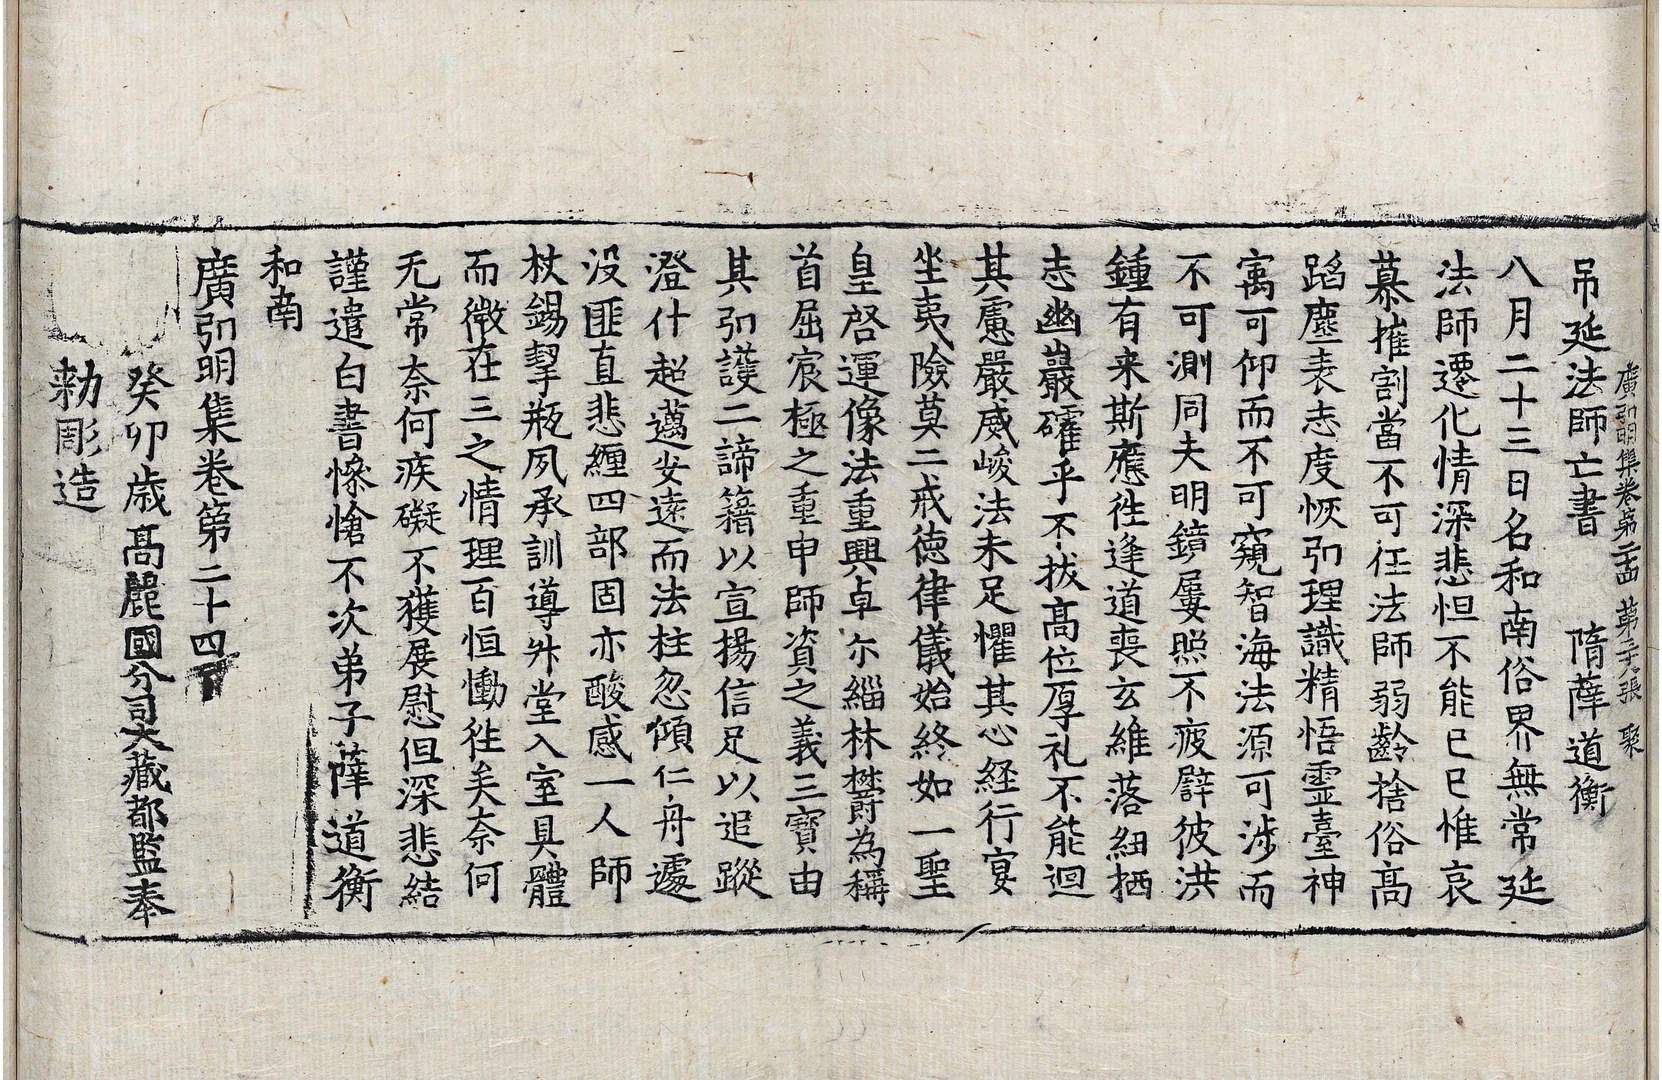 廣弘明集卷第二十四 第二十六張 聚
吊延法師亡書 隋薛道衡
八月二十三日名和南俗界無常延
法師遷化情深悲怛不能已已惟哀
慕摧割當不可任法師弱齡捨俗高
蹈塵表志度恢弘理識精悟靈臺神
寓可仰而不可窺智海法源可涉而
不可測同夫明鏡屢照不疲譬彼洪
鍾有来斯應徃逢道喪玄維落紐栖
志幽巖確乎不拔高位厚礼不能迴
其慮嚴威峻法未足懼其心経行宴
坐夷險莫二戒徳律儀始終如一聖
皇啓運像法重興卓尒緇林欝為稱
首屈宸極之重申師資之義三寶由
其弘護二諦藉以宣揚信足以追蹤
澄什超邁安遠而法柱忽傾仁舟遽
没匪直悲纏四部固亦酸感一人師
杖錫挈瓶夙承訓導升堂入室具體
而微在三之情理百恒慟徃矣奈何
无常奈何疾礙不獲展慰但深悲結
謹遣白書慘愴不次弟子薛道衡
和南
廣弘明集卷第二十四
癸卯歳高麗國分司大藏都監奉
勅彫造